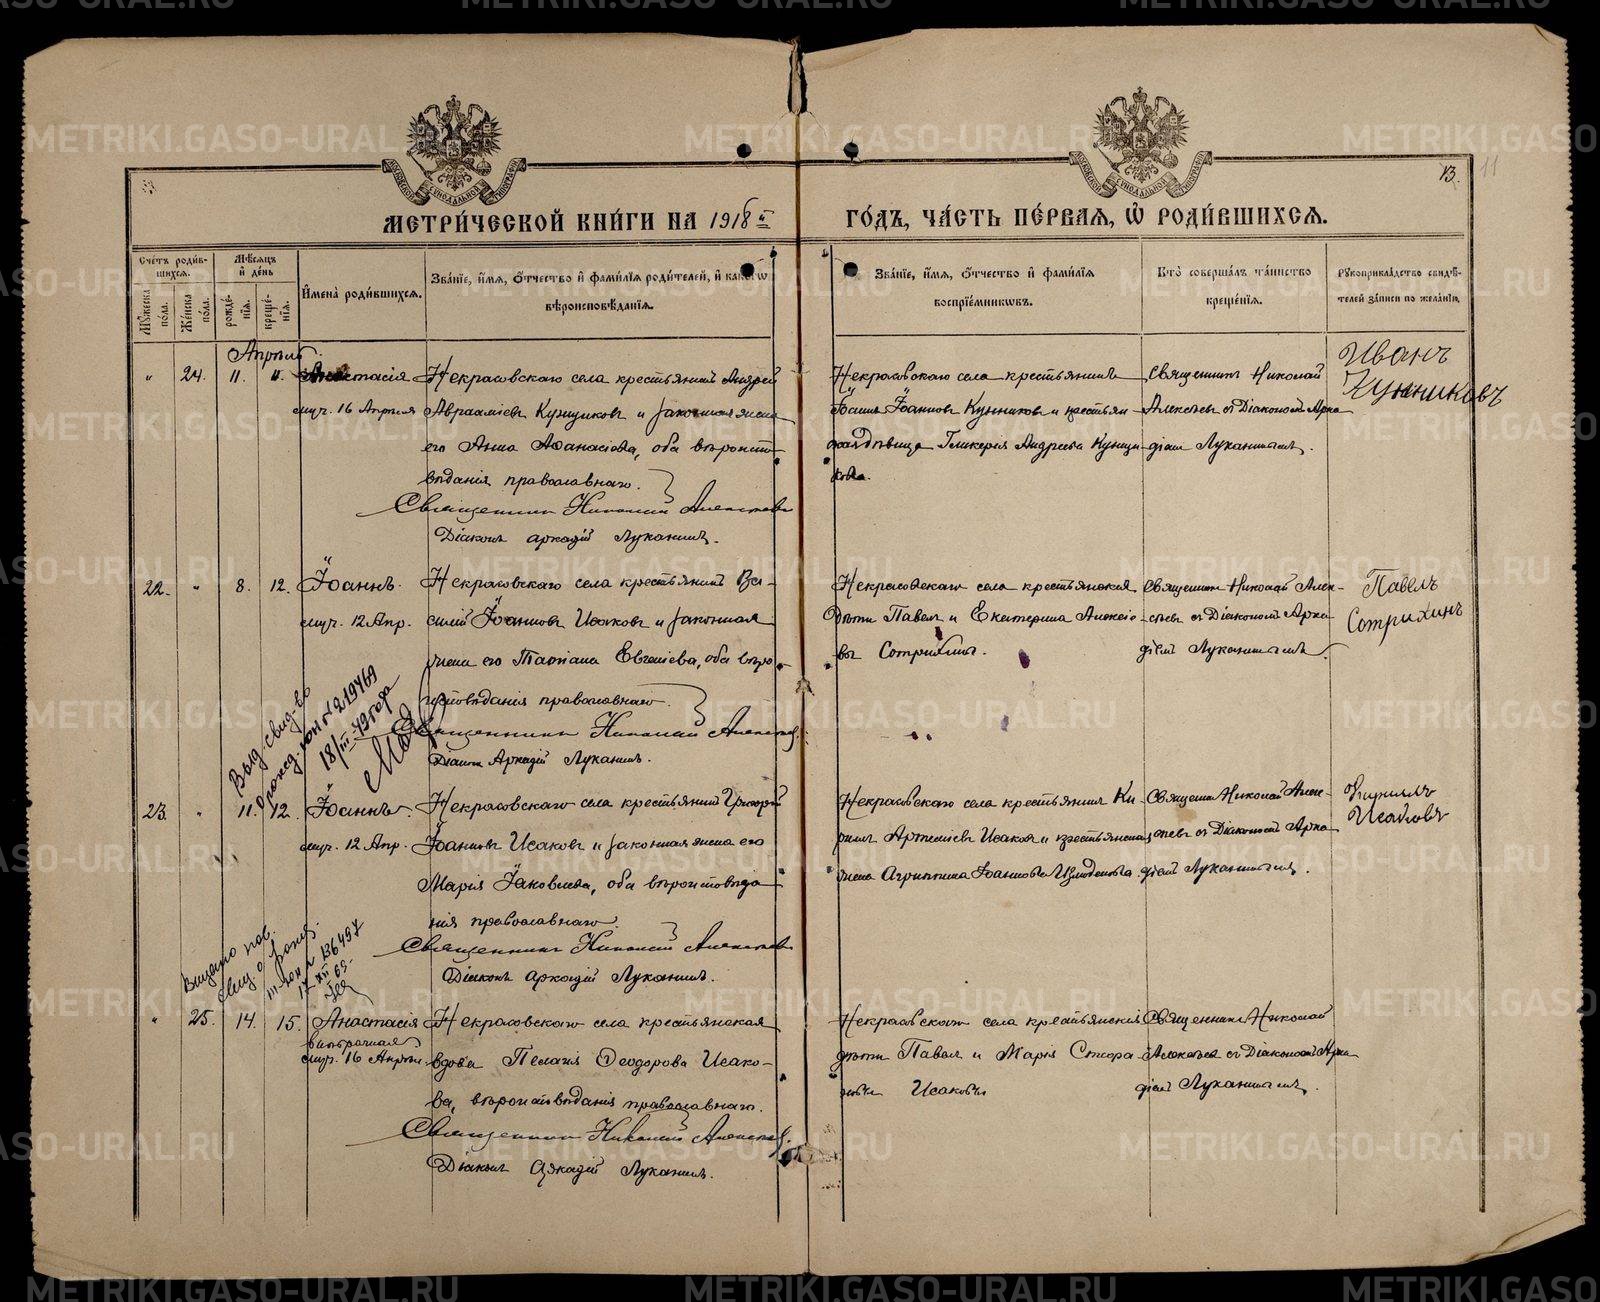 МЕТРИ́ЧЕСКОЙ КНИ́ГИ НА 1918й
ГО́ДЪ, ЧА́СТЬ ПЕ́РВАЯ, Ѡ҆ РОДИ́ВШИХСЯ.
13.
11
Сче́тъ роди́в-
шихся.
Му́жеска
по́ла.
Же́нска
по́ла.
Мѣ́сяцъ
и҆ де́нь
рожде́-
нїя.
креще́-
нїя.
И҆мена̀ роди́вшихся.
Зва́нїе, и҆́мя, ѻ҆́тчество и҆ фами́лїя роди́телей, и҆ како́гѡ
вѣроисповѣ́данїя.
Зва́нїе, и҆́мя, ѻ҆́тчество и҆ фами́лїя
воспрїе́мникѡвъ.
Кто̀ соверша́лъ та́инство
креще́нїя.
Рꙋкоприкла́дство свидѣ́-
телей за́писи по жела́нїю.
Апрѣль
" 24. 11. 11. Анастасія
муч. 16 Апрѣля
Некрасовскаго села крестьянинъ Андрей
Авраамiевъ Кунниковъ и законная жена
его Анна Аѳанасіева, оба вѣроиспо-
вѣданія православнаго.
Священникъ Николай Алексѣевъ
Діаконъ Аркадій Луканинъ.
Некрасовскаго села крестьянинъ
Іоаннъ Іоанновъ Кунниковъ и крестьян-
ская дѣвица Гликерія Андреева Кунни-
кова.
Священникъ Николай
Алексѣевъ съ Діакономъ Арка-
діемъ Луканинымъ.
Иванъ
Кунниковъ
22. " 8. 12. Іоаннъ.
муч. 12 Апр.
Некрасовскаго села крестьянинъ Ва-
силій Іоанновъ Исаковъ и законная
жена его Татіана Евгеніева, оба вѣро-
исповѣданія православнаго.
Священникъ Николай Алексѣевъ
Діаконъ Аркадій Луканинъ.
Некрасовскаго села крестьянскія
дѣти Павелъ и Екатерина Алексіе-
вы Сотрихины.
Священникъ Николай Алек-
сѣевъ съ Діакономъ Арка-
діемъ Луканинымъ.
Павелъ
Сотрихинъ
Выд. свид-во
о рожд. N 219469
18/III-49 года
23. " 11. 12. Іоаннъ.
муч. 12 Апр.
Некрасовскаго села крестьянинъ Григорій
Іоанновъ Исаковъ и законная жена его
Марія Іаковлева, оба вѣроисповѣда-
нія православнаго.
Священникъ Николай Алексѣевъ
Діаконъ Аркадій Луканинъ.
Некрасовскаго села крестьянинъ Ки-
риллъ Артеміевъ Исаковъ и крестьянская
жена Агриппина Іоаннова
Священникъ Николай Алек-
сѣевъ съ Діакономъ Арка-
діемъ Луканинымъ.
Кириллъ
Исаковъ
Выдано пов.
свид. о рожд.
" 25. 14. 15. Анастасія
внѣбрачная
муч. 16 Апрѣл.
Некрасовскаго села крестьянская
вдова Пелагія Ѳеодорова Исако-
ва, вѣроисповѣданія православнаго.
Священникъ Николай Алексѣевъ.
Діаконъ Аркадій Луканинъ.
Некрасовскаго села крестьянскія
дѣти Павелъ и Марія
Исаковы
Священникъ Николай
Алексѣевъ съ Діакономъ Арка-
діемъ Луканинымъ.
METRIKI.GASO-URAL.RU